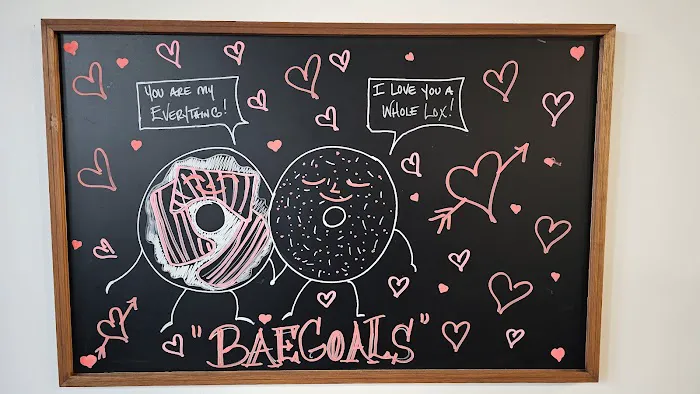 YOU ARE MY
EVERYTHING!
I LOVE YOU A
WHOLE LOX!
"BAEGOALS"